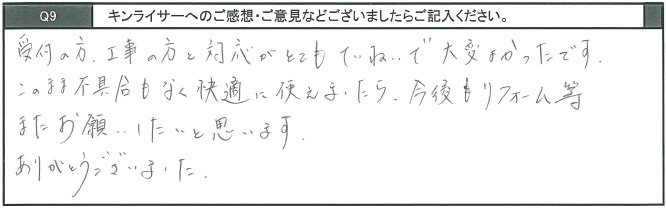 Q9 キンライサーへのご感想・ご意見などございましたらご記入ください。
受付の方、工事の方と対応がとてもていねいで大変よかったです。
このまま不具合もなく快適に使えましたら、今後もリフォーム等
またお願いしたいと思います。
ありがとうございました。